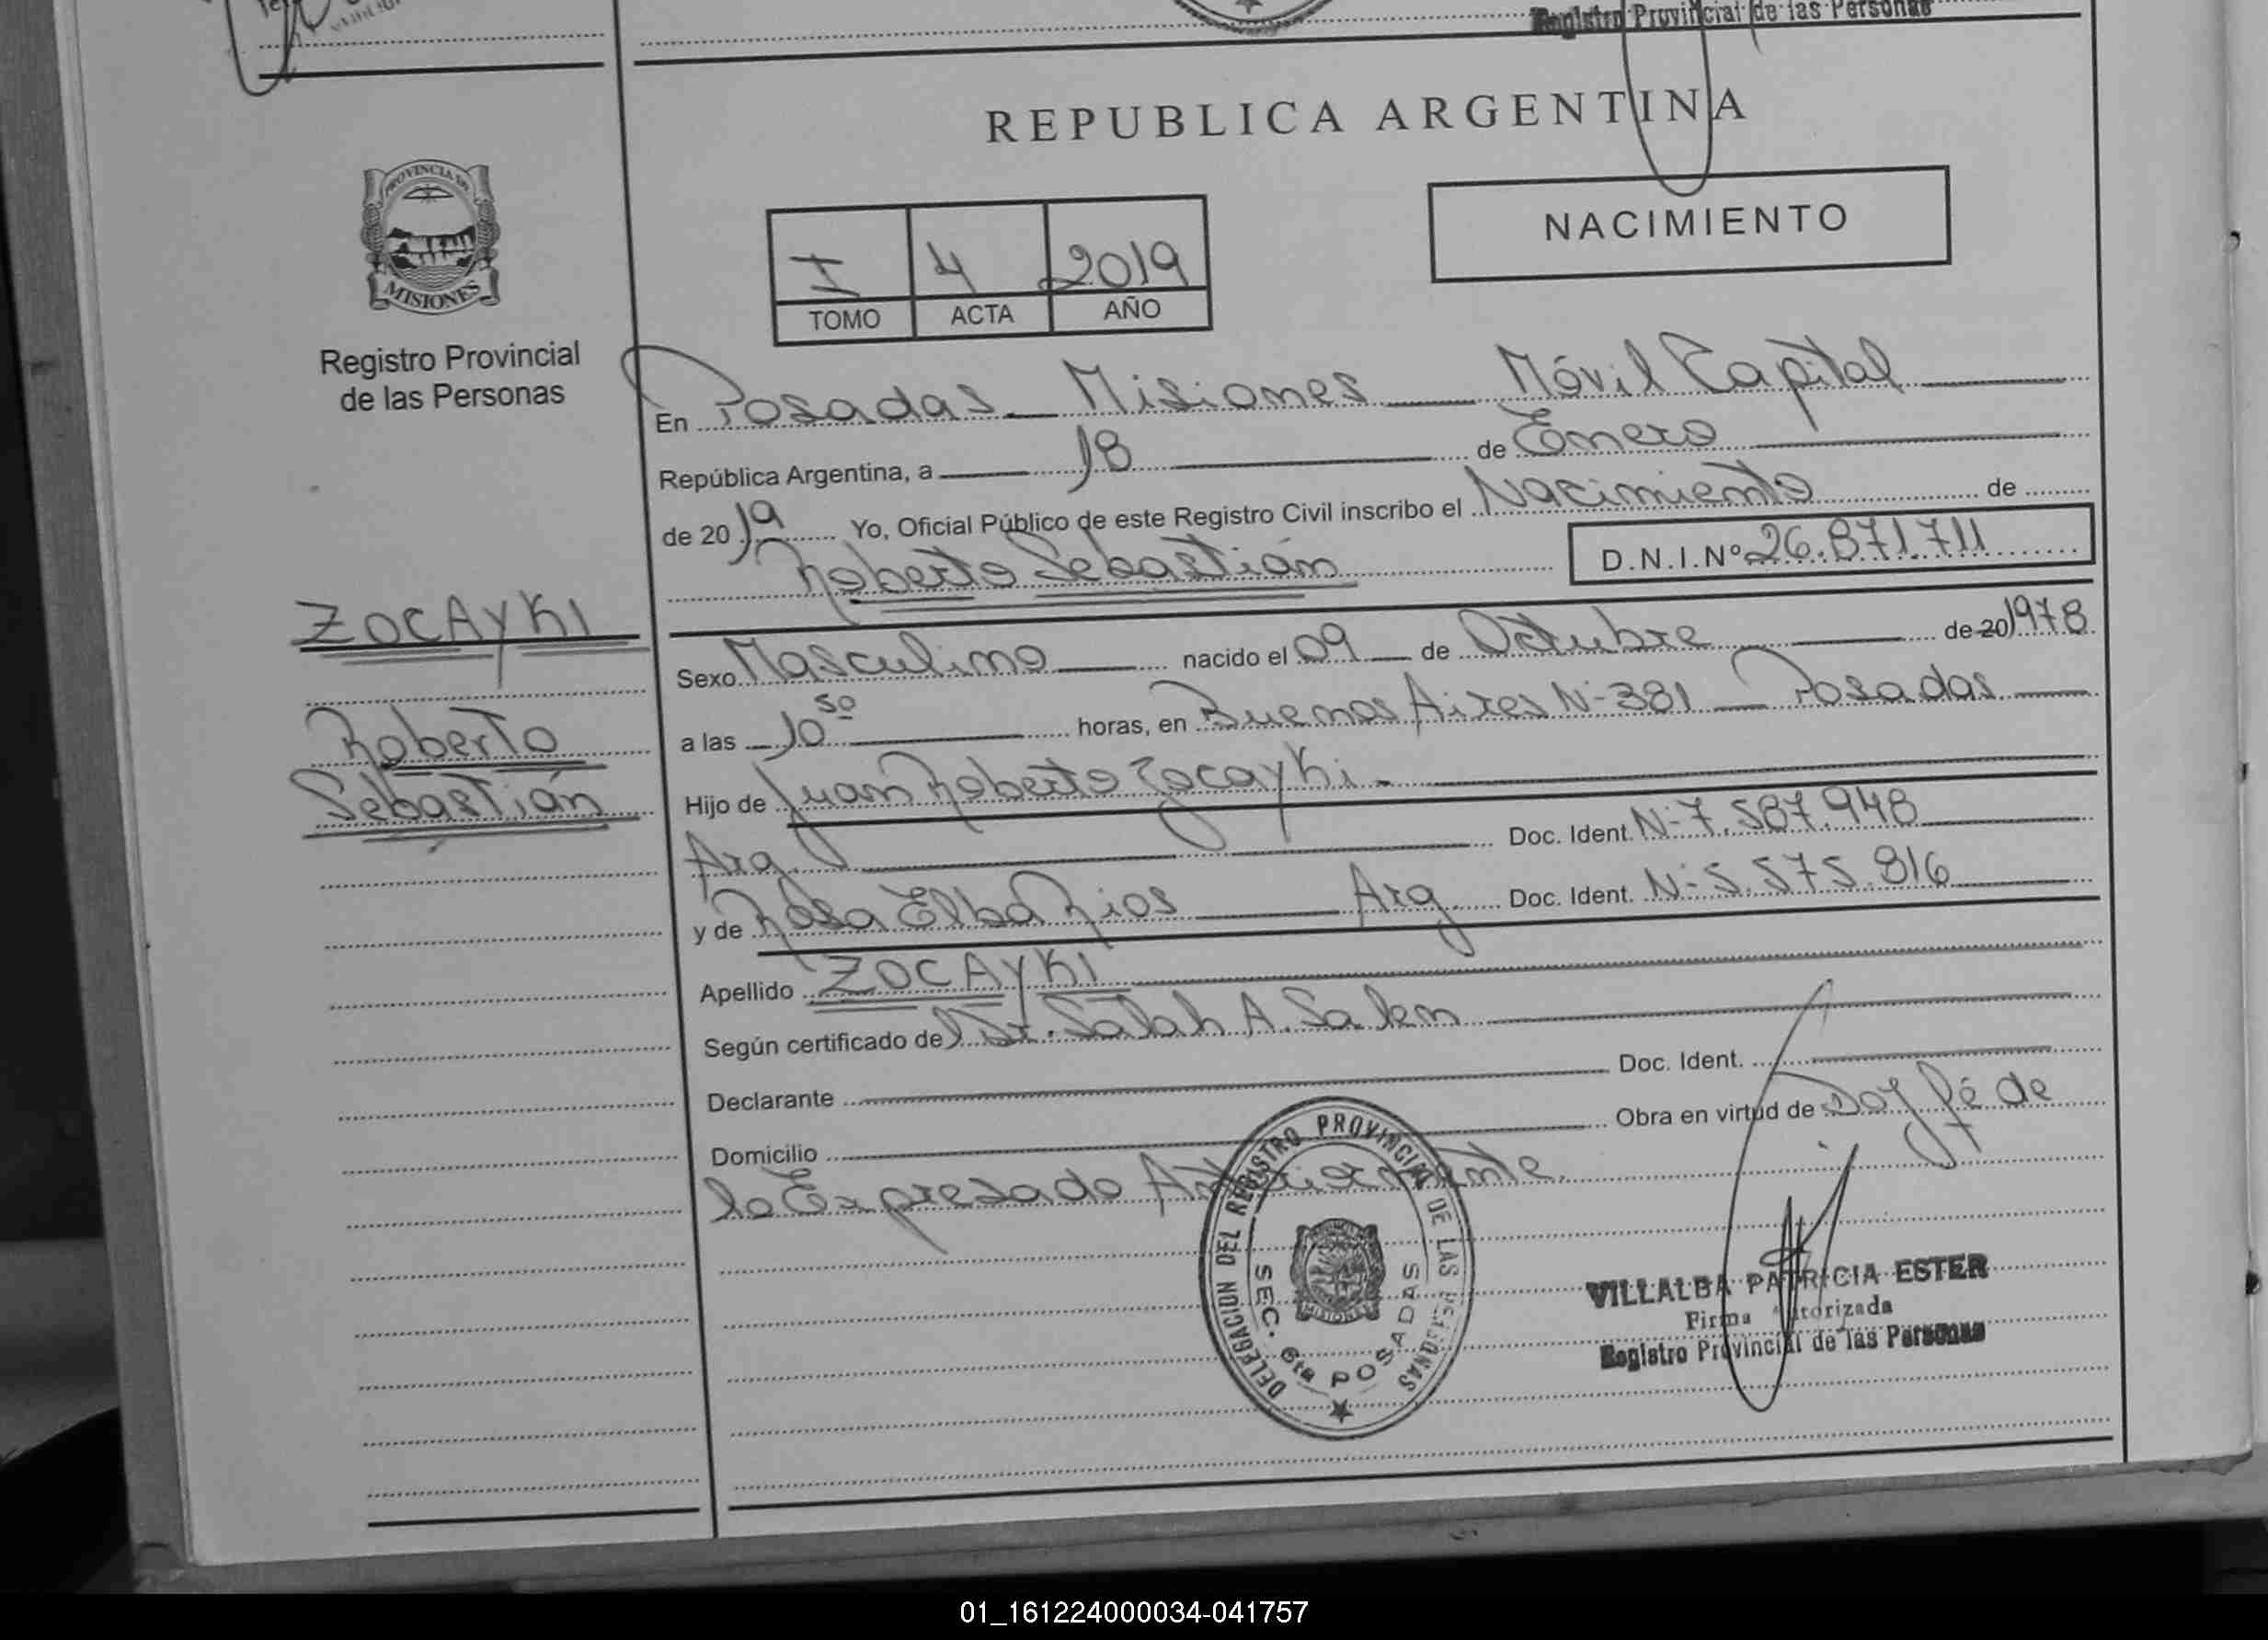 Registro Provincial de las Personas
REPUBLICA ARGENTINA
PROVINCIA DE
MISIONES
Registro Provincial
de las Personas
NACIMIENTO
I 4 2019
TOMO ACTA AÑO
En Posadas Misiones Móvil Capital
República Argentina, a 18 de Enero
de 2019 Yo, Oficial Público de este Registro Civil inscribo el Nacimiento de
Roberto Sebastián D.N.I.Nº 26.871.711
ZOCAYKI
Roberto
Sebastián
Sexo Masculino nacido el 09 de Octubre de 20 1978
a las 10 50 horas, en Buenos Aires N-381 Posadas
Hijo de Juan Roberto Zocayki
Arg. Doc. Ident. N-7.587.948
y de Rosa Elba Rios Arg. Doc. Ident. N-5.575.816
Apellido ZOCAYKI
Según certificado del Dr. Salah A. Salem
Declarante Doc. Ident.
Domicilio Obra en virtud de Doy fé de
lo Expresado Anteriormente.
DELEGACION DEL REGISTRO PROVINCIAL DE LAS PERSONAS
SEC. 6ta POSADAS
MISIONES
VILLALBA PATRICIA ESTER
Firma Autorizada
Registro Provincial de las Personas
01_161224000034-041757